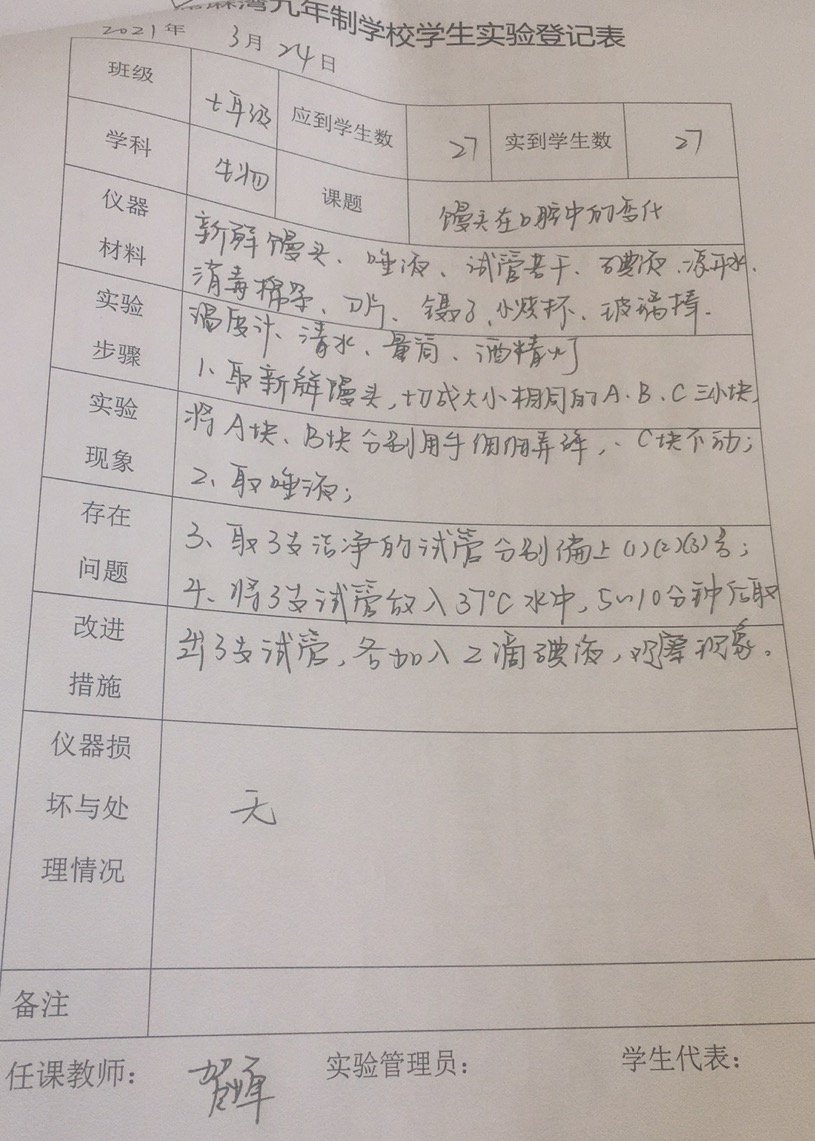 湾九年制学校学生实验登记表
2021年 3月24日
班级 七年级 应到学生数 27 实到学生数 27
学科 生物 课题 馒头在口腔中的变化
仪器材料 新鲜馒头、唾液、试管若干、碘液、凉开水、
消毒棉絮、刀片、镊子、小烧杯、玻璃棒、
温度计、清水、量筒、酒精灯
实验步骤 1、取新鲜馒头,切成大小相同的A、B、C三小块,
实验现象 将A块、B块分别用手细细弄碎,、C块不动;
2、取唾液;
存在问题 3、取3支洁净的试管分别编上(1)(2)(3)号;
4、将3支试管放入37℃水中,5~10分钟后取
改进措施 出3支试管,各加入2滴碘液,观察现象。
仪器损坏与处理情况 无
备注
任课教师: 实验管理员: 学生代表: